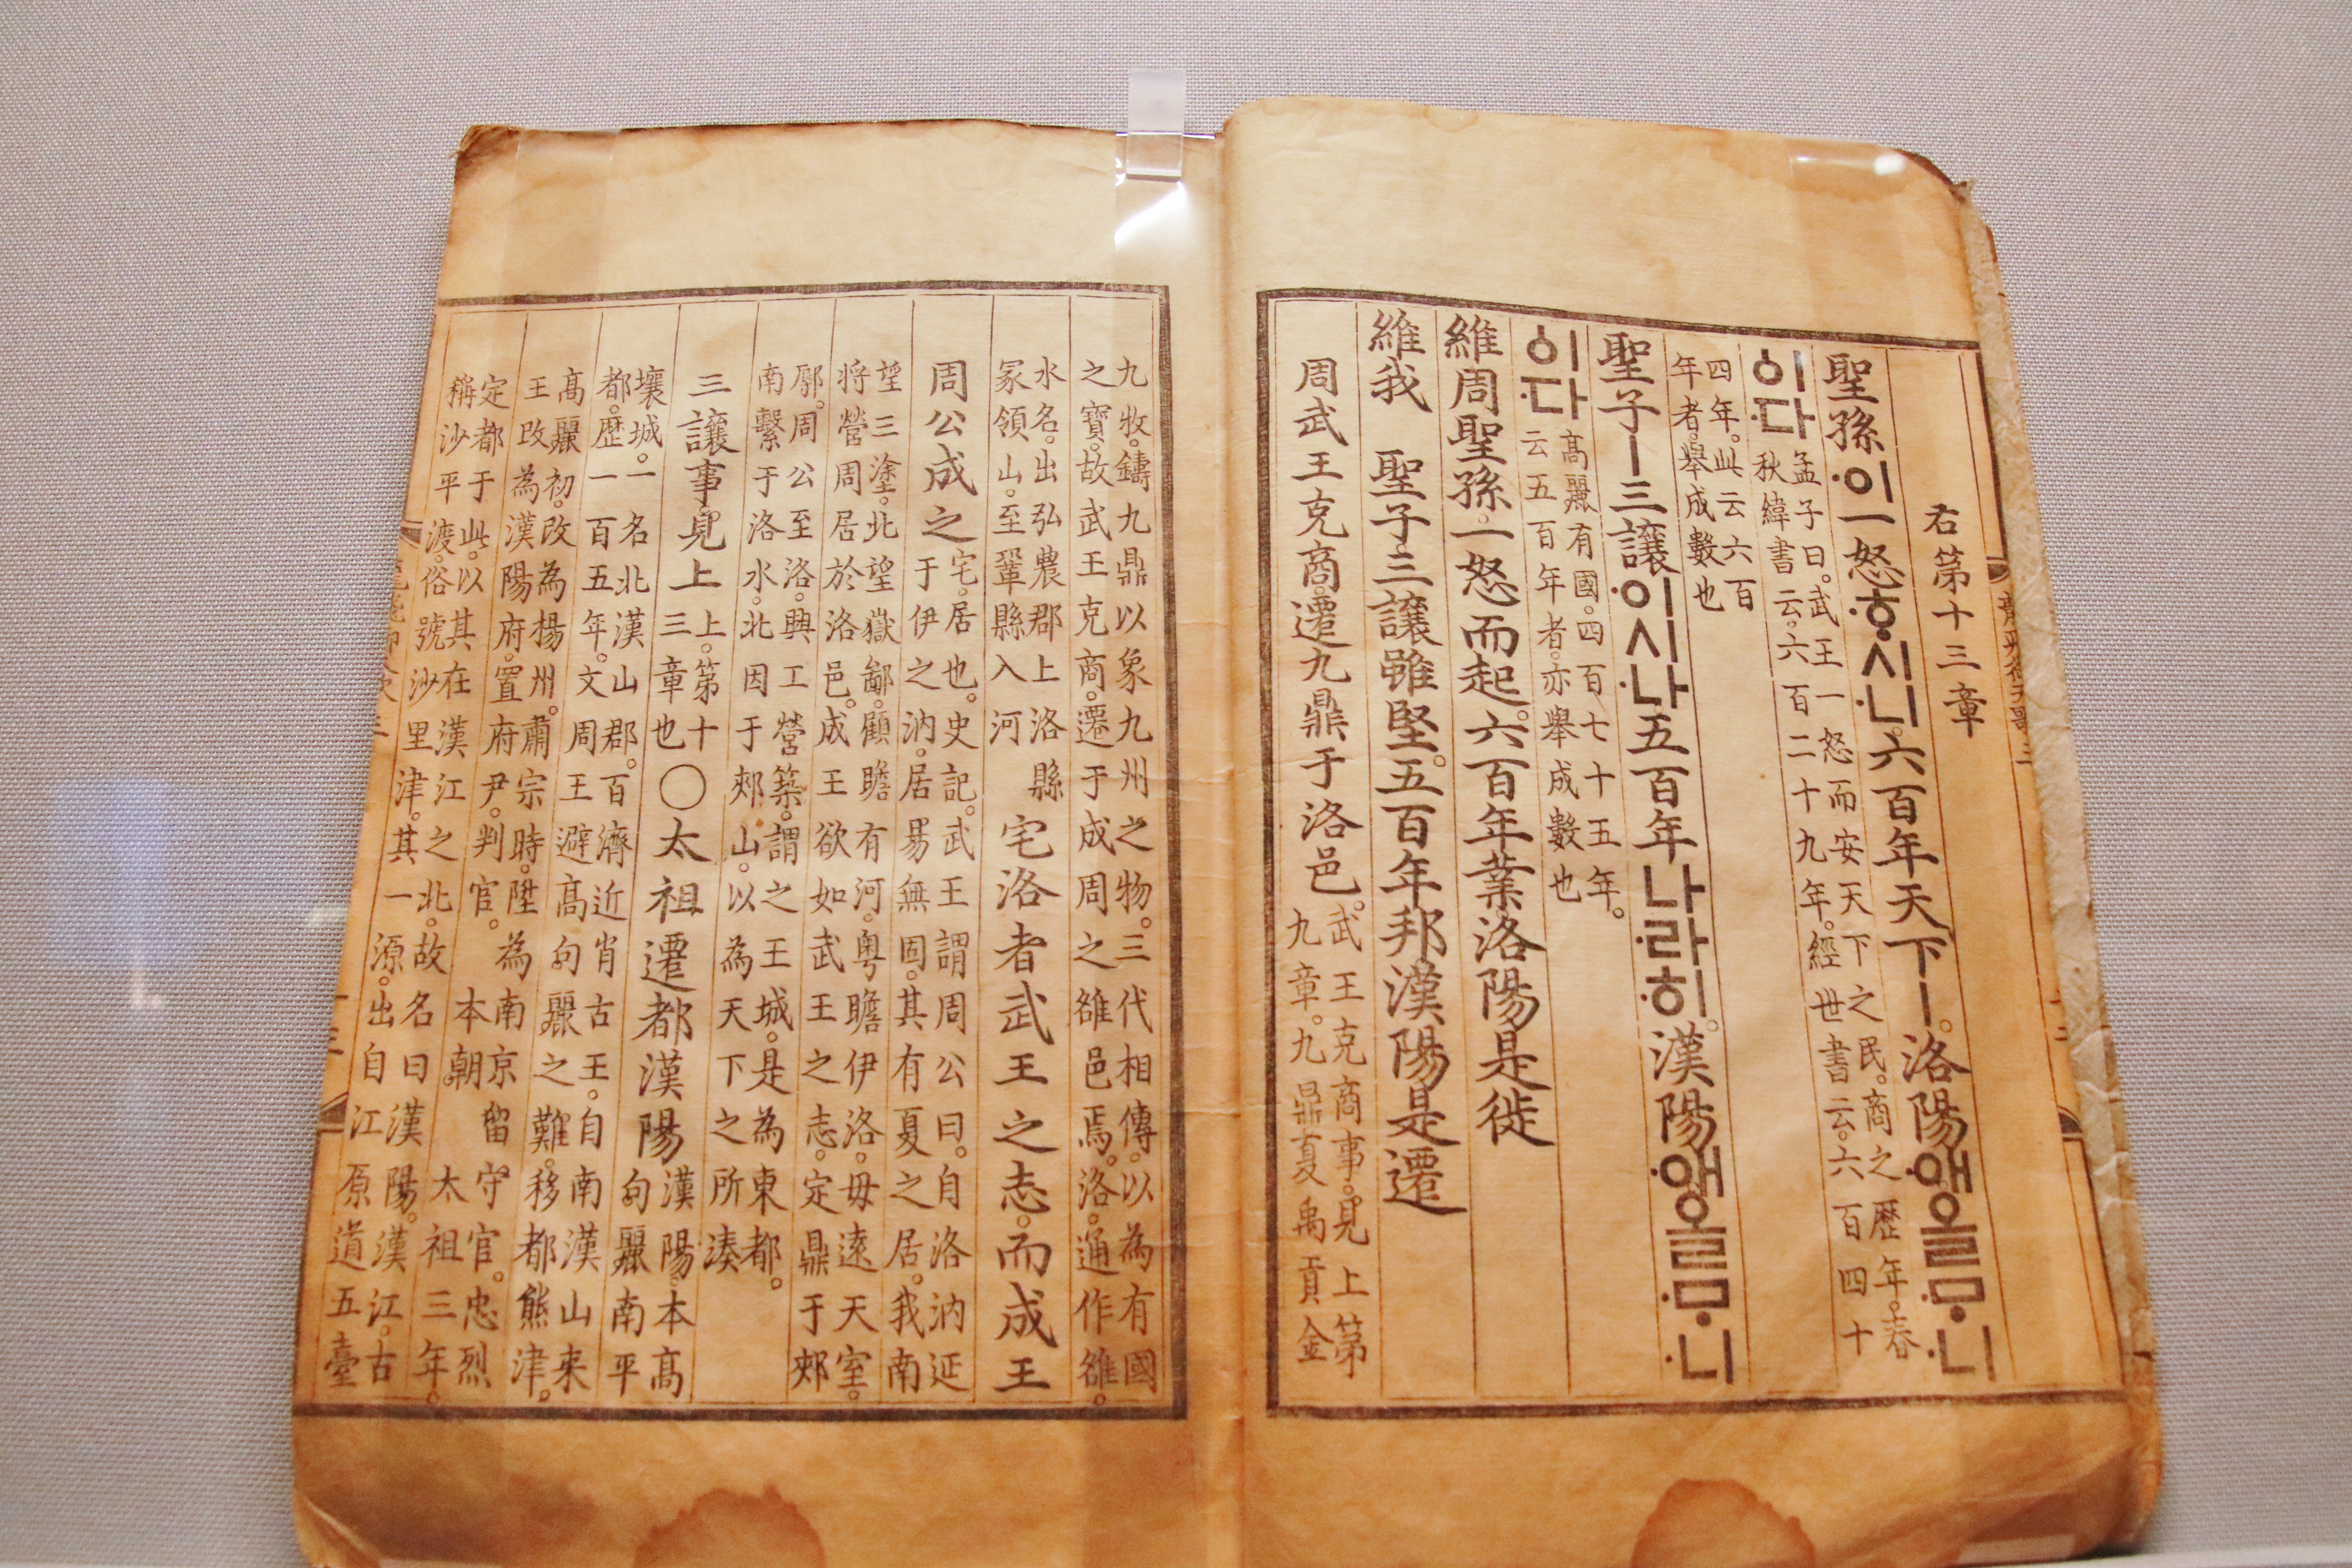 右第十三章
聖孫·이一怒·ᄒᆞ·시·니。六百年天下ㅣ。洛陽·애올·ᄆᆞ·니
·이·다
孟子曰。武王一怒而安天下之民。商之歷年。春
秋緯書云。六百二十九年。經世書云。六百四十
四年。此云六百
年者。舉成數也
聖子ㅣ三讓·이시·나五百年나·라·히。漢陽·애올·ᄆᆞ·니
이·다
高麗有國。四百七十五年。
云五百年者。亦舉成數也
維周聖孫。一怒而起。六百年業。洛陽是徙
維我 聖子。三讓雖堅。五百年邦。漢陽是遷
周武王克商。遷九鼎于洛邑。
武王克商事。見上第
九章。九鼎夏禹貢金
九牧。鑄九鼎以象九州之物。三代相傳。以為有國
之寶。故武王克商。遷于成周之雒邑焉。洛。通作雒。
水名。出弘農郡上洛縣
冢領山。至鞏縣入河
宅洛者武王之志。而成王
周公成之
宅。居也。史記。武王謂周公曰。自洛汭延
于伊之汭。居易無固。其有夏之居。我南
望三塗。北望嶽鄙。顧瞻有河。粵瞻伊洛。毋遠天室。
將營周居於洛邑。成王欲如武王之志。定鼎于郟
鄏。周公至洛。興工營築。謂之王城。是為東都。
南繫于洛水。北因于郟山。以為天下之所湊
三讓事。見上
上。第十
三章也
○太祖遷都漢陽
漢陽。本高
句麗南平
壤城。一名北漢山郡。百濟近肖古王。自南漢山來
都。歷一百五年。文周王避高句麗之難。移都熊津。
高麗初。改為楊州。肅宗時。陞為南京留守官。忠烈
王改為漢陽府。置府尹。判官。本朝 太祖三年。
定都于此。以其在漢江之北。故名曰漢陽。漢江。古
稱沙平渡。俗號沙里津。其一源。出自江原道五臺